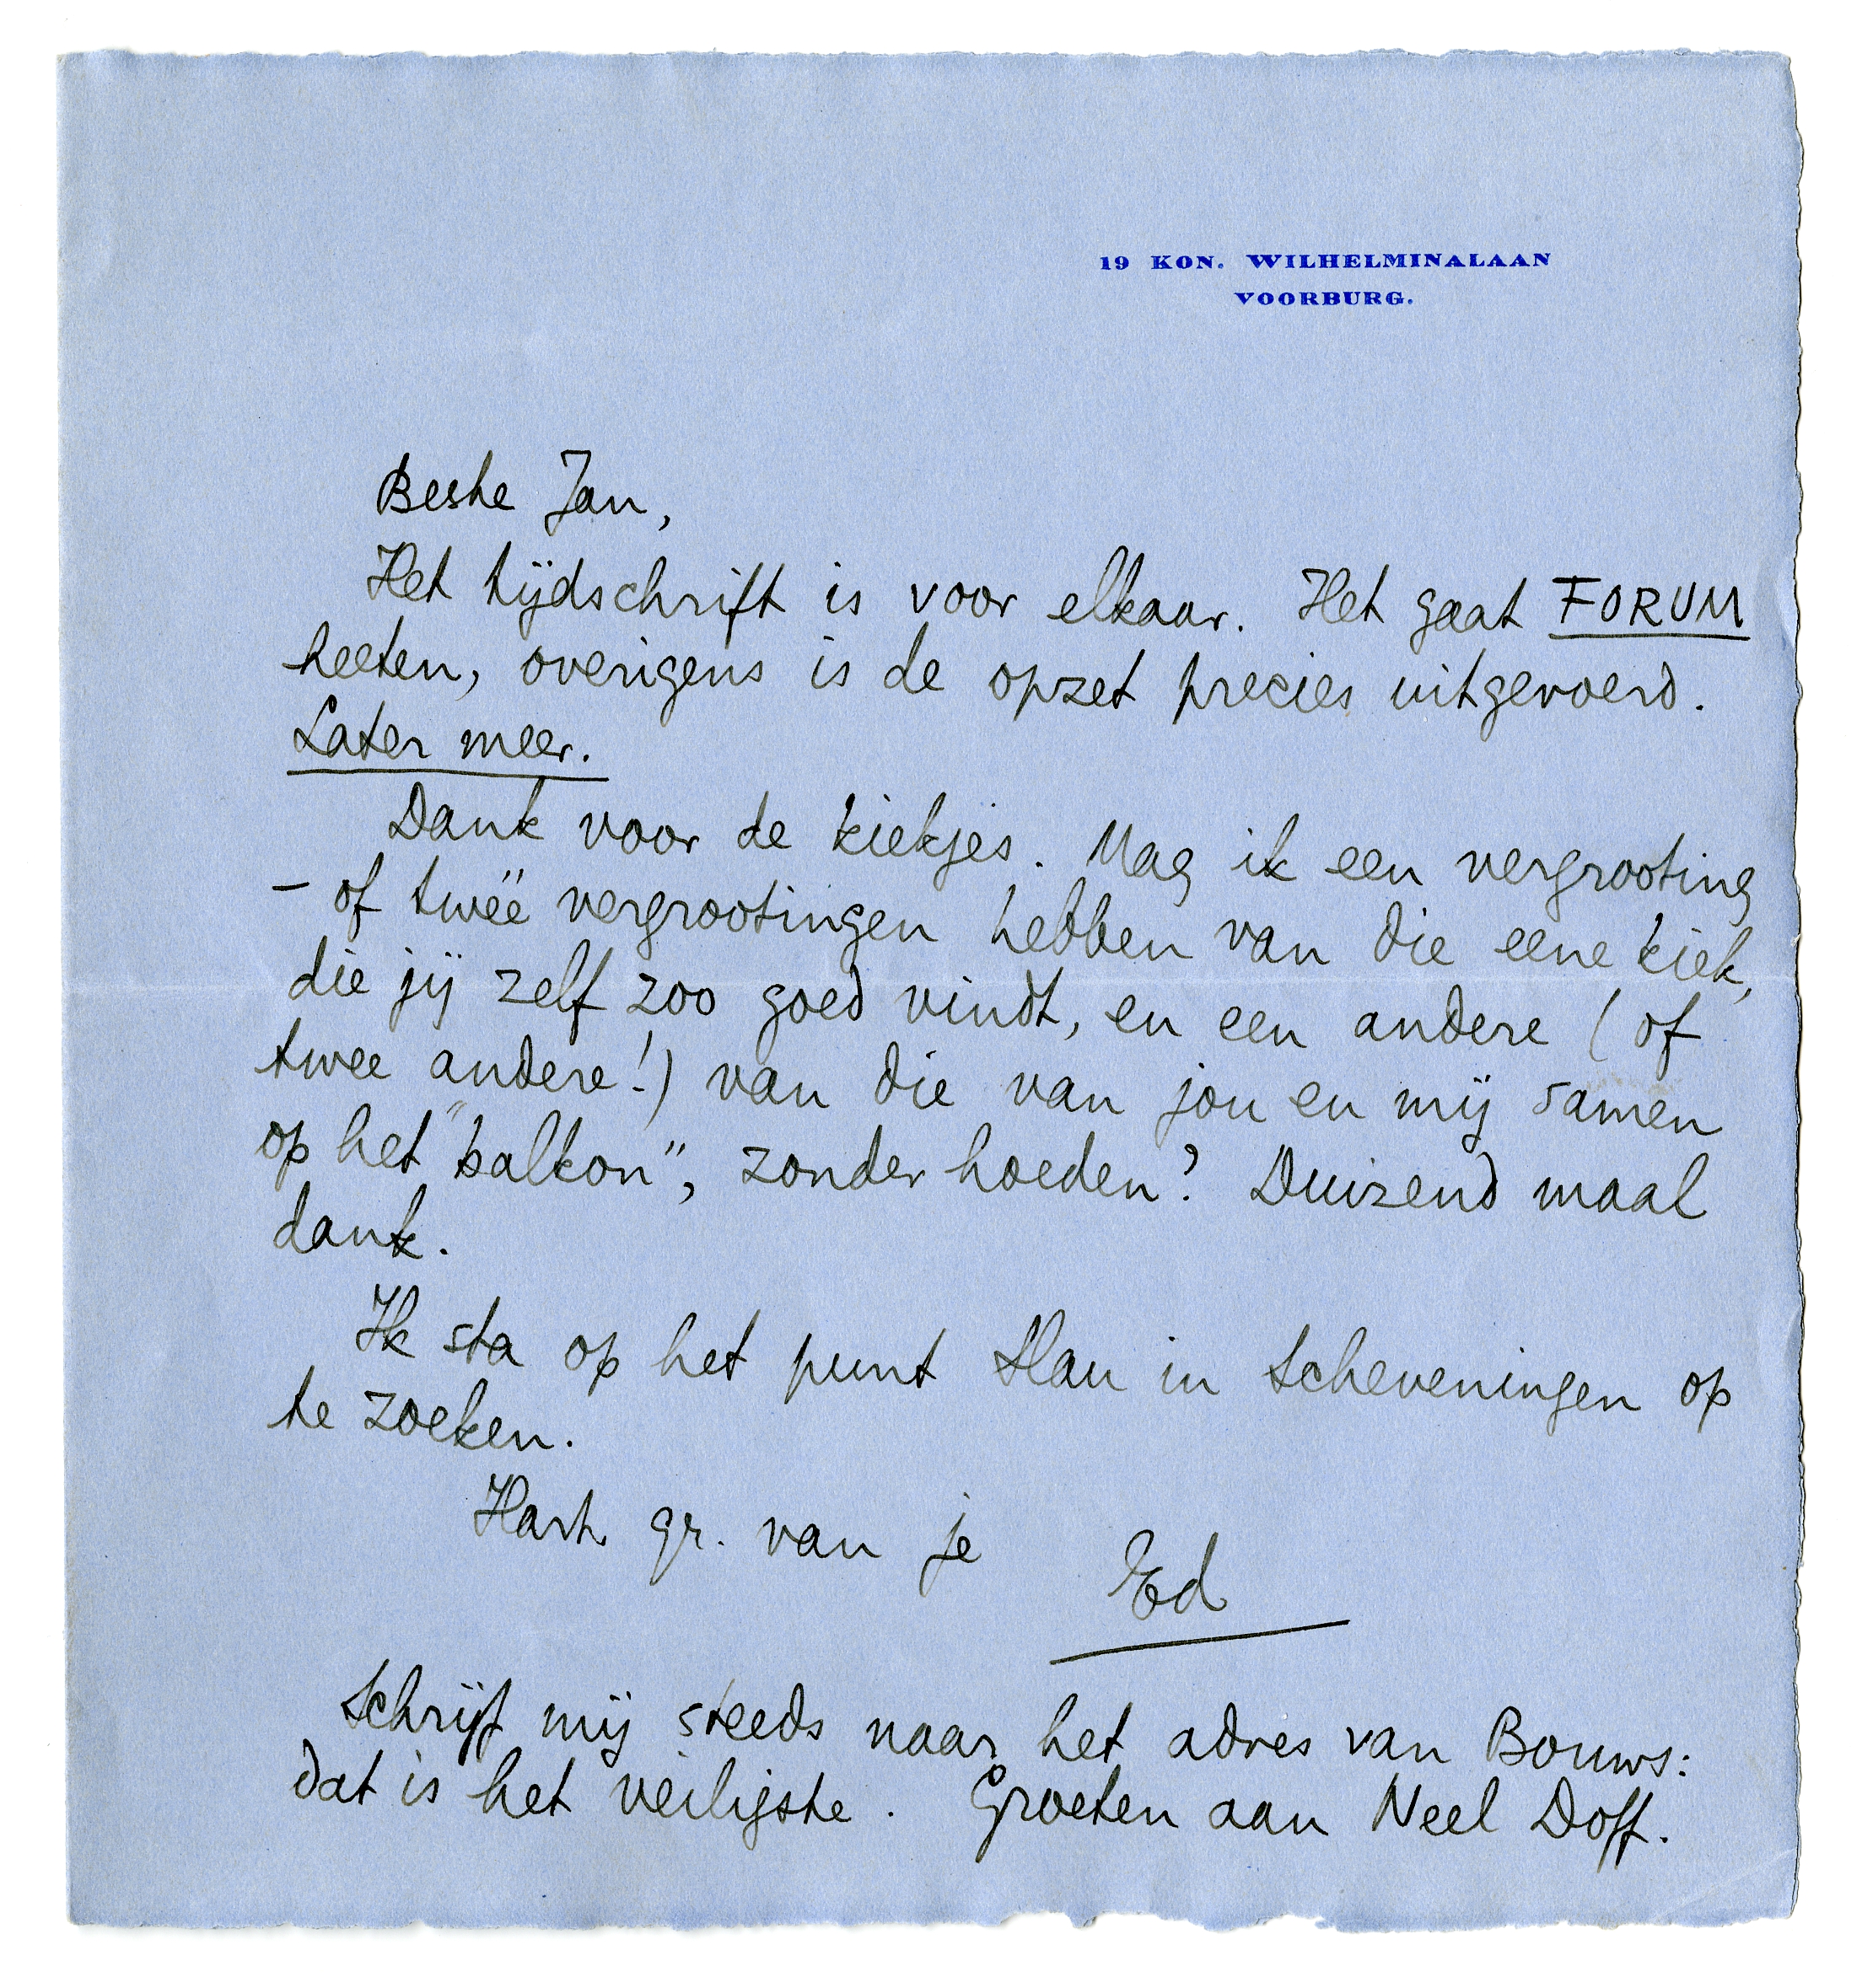 19 KON. WILHELMINALAAN
VOORBURG.
Beste Jan,
Het tijdschrift is voor elkaar. Het gaat FORUM
heeten, overigens is de opzet precies uitgevoerd.
Later meer.
Dank voor de kiekjes. Mag ik een vergrooting
– of twéé vergrootingen hebben van die eene kiek,
die jij zelf zoo goed vindt, en een andere (of
twee andere!) van die van jou en mij samen
op het "balkon", zonder hoeden? Duizend maal
dank.
Ik sta op het punt Slau in Scheveningen op
te zoeken.
Hart. gr. van je
Ed
Schrijf mij steeds naar het adres van Bouws:
dat is het veiligste. Groeten aan Neel Doff.